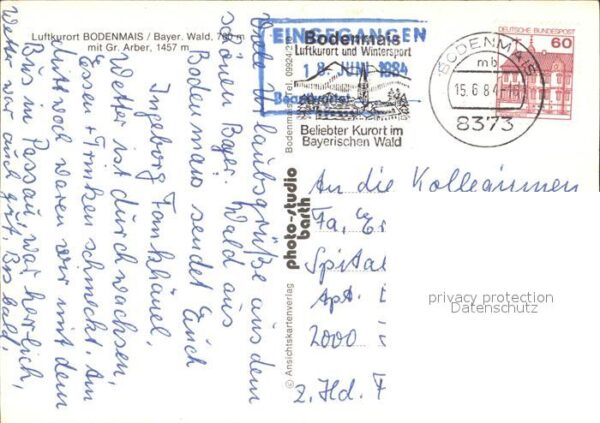 Luftkurort BODENMAIS / Bayer. Wald, 700 m
mit Gr. Arber, 1457 m
Viele Urlaubsgrüße aus dem
schönen Bayer. Wald aus
Bodenmais sendet Euch
Ingeborg
Wetter ist durchwachsen,
Essen + Trinken schmeckt. Am
Mittwoch waren wir mit dem
Bus in Passau, war herrlich,
Wetter war auch gut. Bis bald!
Bodenmais Tel. 09924/
photo-studio
barth
© Ansichtskartenverlag
EINGEGANGEN
18. JUNI 1984
Beantwortet
Bodenmais
Luftkurort und Wintersport
Beliebter Kurort im
Bayerischen Wald
BODENMAIS
mb
15.6.84-16
8373
DEUTSCHE BUNDESPOST
60
An die Kolleginnen
Fa. Er
Spital
Apt.
2000
z. Hd. F
privacy protection
Datenschutz